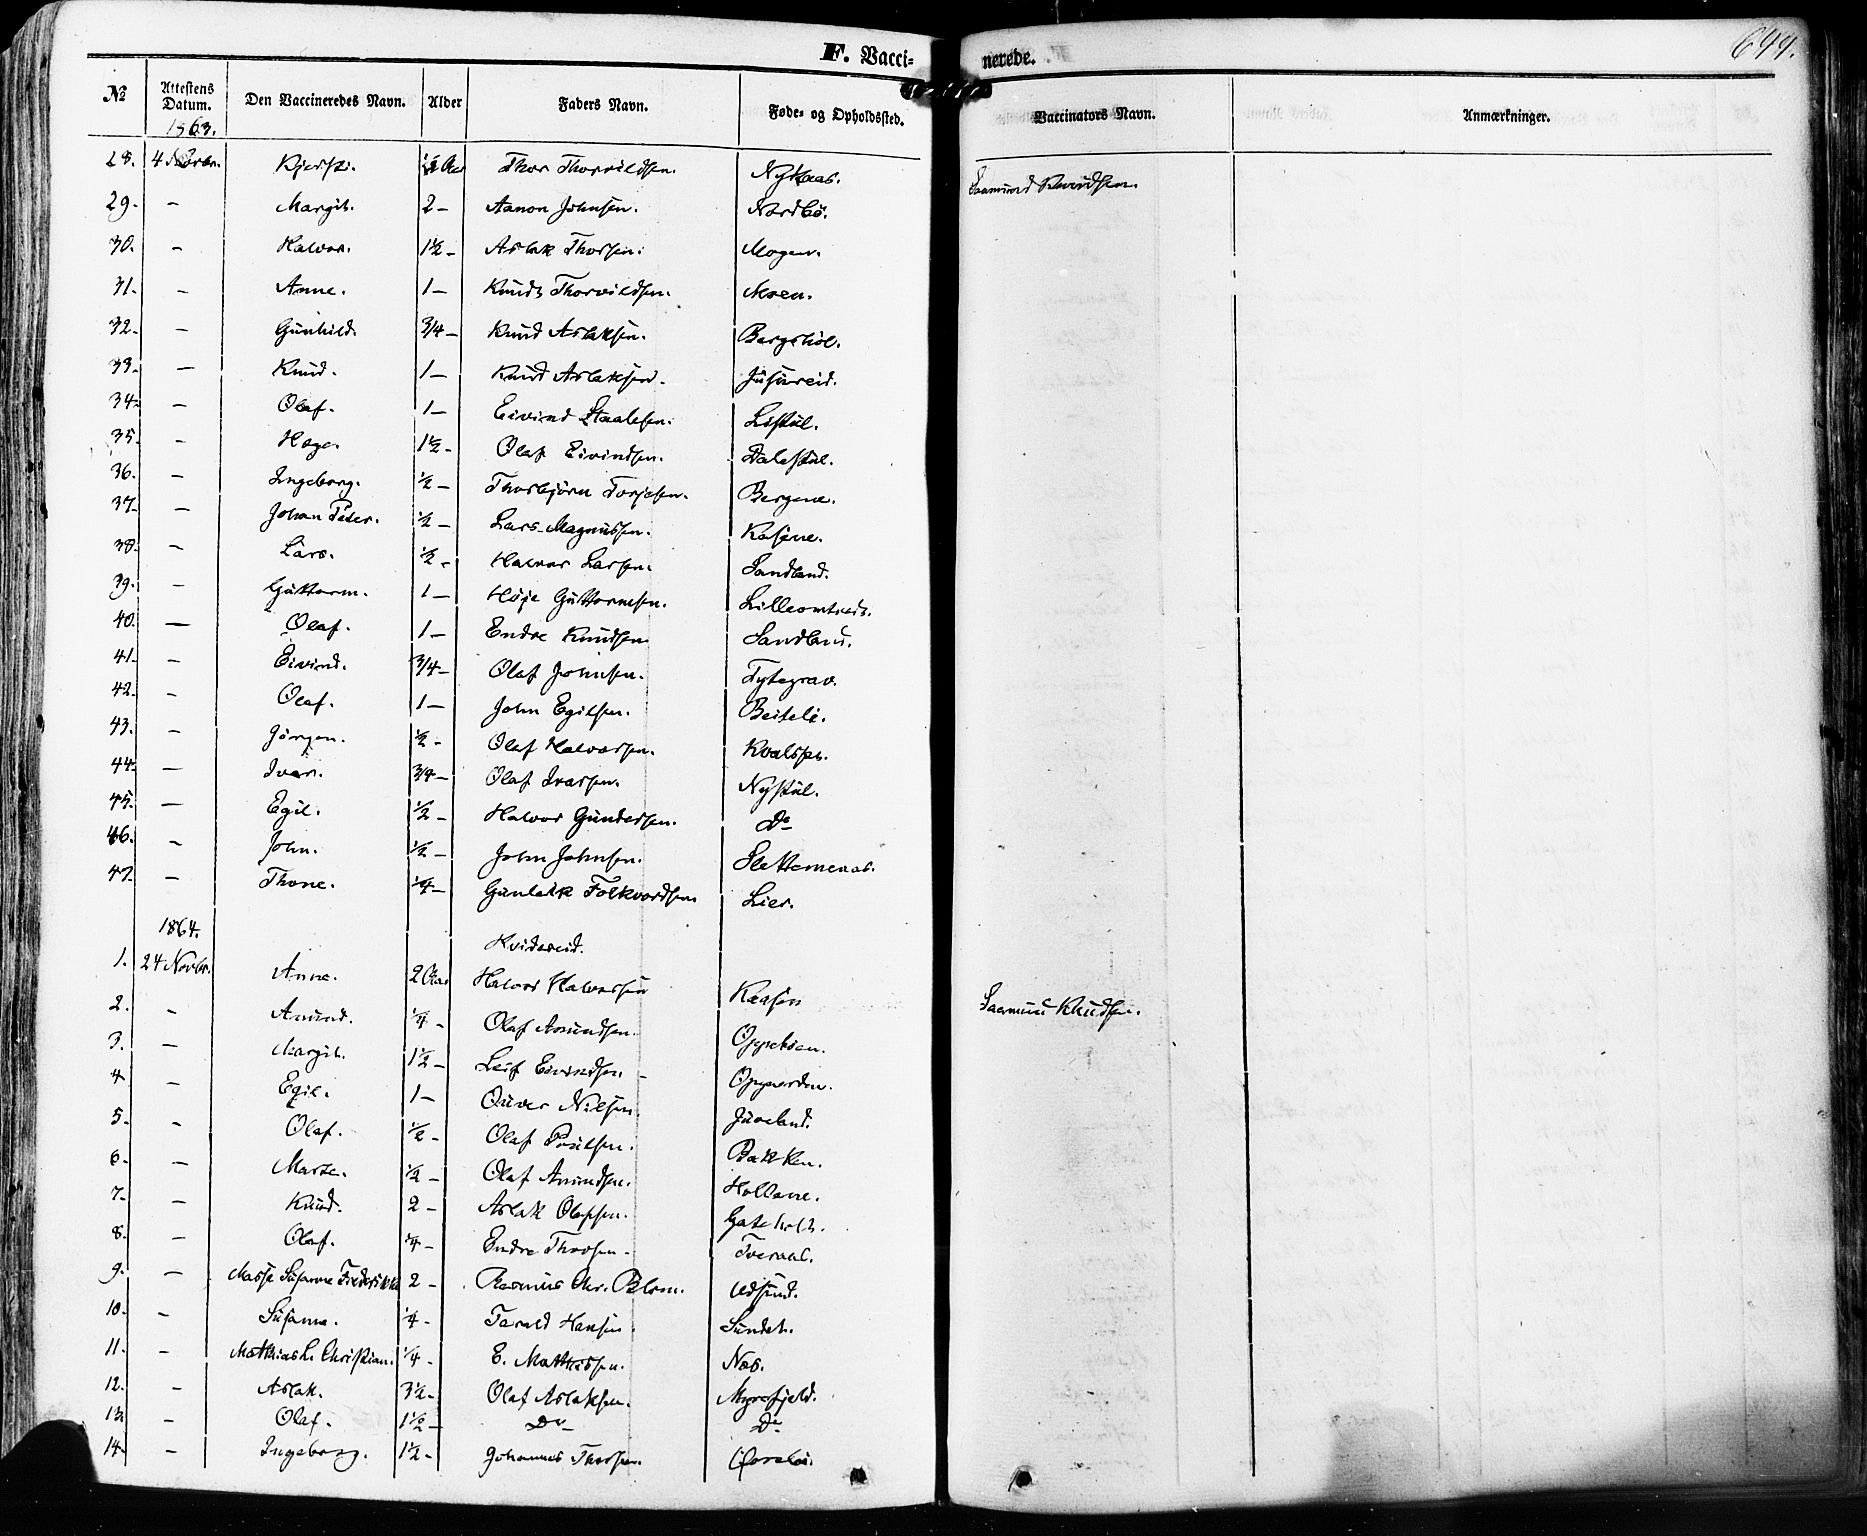 F. Vacci-
nerede.
644.
№ Attestens Datum. Den Vaccineredes Navn. Alder Faders Navn. Føde- og Opholdssted. Vaccinators Navn. Anmærkninger.
1863.
28. 4 Novbr. Kjersti. Aar Thor Thorvildsen. Nykaas. Saamund Knudsen.
29. - Margit. 2 - Aanon Johnsen. Nordbö.
30. - Halvor. 1½ - Aslak Thorsen. Mogen.
31. - Anne. 1 - Knud Thorvildsen. Moen.
32. - Gunhild. 3/4 - Knud Aslaksen. Bergstöl.
33. - Knud. 1 - Knud Aslaksen. Jusureid.
34. - Olaf. 1 - Eivind Staalesen. Listul.
35. - Hæge. 1½ - Olaf Eivindsen. Dalestul.
36. - Ingeborg. ½ - Thorbjörn Torjesen. Bergene.
37. - Johan Peder. ½ - Lars Magnussen. Kasene.
38. - Lars. ½ - Halvor Larsen. Sandland.
39. - Guttorm. 1 - Høje Guttormsen. Lilleomtveit.
40. - Olaf. 1 - Endre Knudsen Sandland.
41. - Eivind. 3/4 - Olaf Johnsen. Tytegrav.
42. - Olaf. 1 - John Egilsen. Beiteli.
43. - Jörgen. ½ - Olaf Halvorsen.
44. - Ivar. 3/4 - Olaf Ivarsen. Nystul.
45. - Egil. ½ - Halvor Gundersen. Do
46. - John. ½ - John Johnsen. Slettemenaas.
47. - Thone. ¼ - Gunleik Folkvordsen Lier.
1864.
Kvidereid.
1. 24 Novbr. Anne. 2 Aar Halvor Halvorsen Kaasen
2. - Amund. ¼ - Olaf Amundsen. Oppeboen.
3. - Margit. 1½ - Leif Eivindsen - Opgarden.
4 - Egil. 1 - Oliver Nilsen. Juveland.
5. - Olaf. ½ - Olaf Poulsen. Bakken.
6. - Marte. ½ - Olaf Amundsen. Holtane.
7. - Knud. 2 - Aslak Olafsen. Gateholt.
8. - Olaf. ¼ - Endre Thorsen - Tveraas.
9. - Masse Susanne Frederikke 2 - Rasmus Chr. Blom. Udsund.
10. - Susanne. ¼ - Tarald Hansen. Sundet.
11. - Matthias L. Christian. ¼ - E. Mathissen. Næs.
12. - Aslak. 3½ - Olaf Aslaksen. Myrefjeld.
13. - Olaf. 1½ - Do Do
14. - Ingeborg. 1½ - Johannes Thorsen.
Saamund Knudsen.